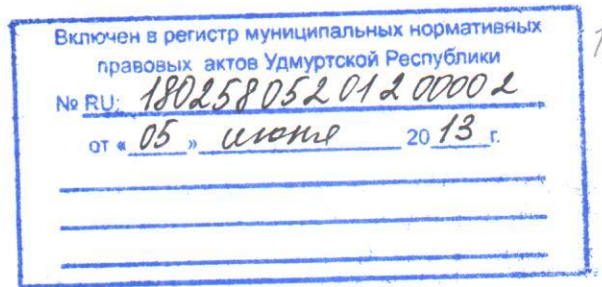 Включен в регистр муниципальных нормативных
правовых актов Удмуртской Республики
№ RU: 180258052012 00002
от « 05 » июня 20 13 г.